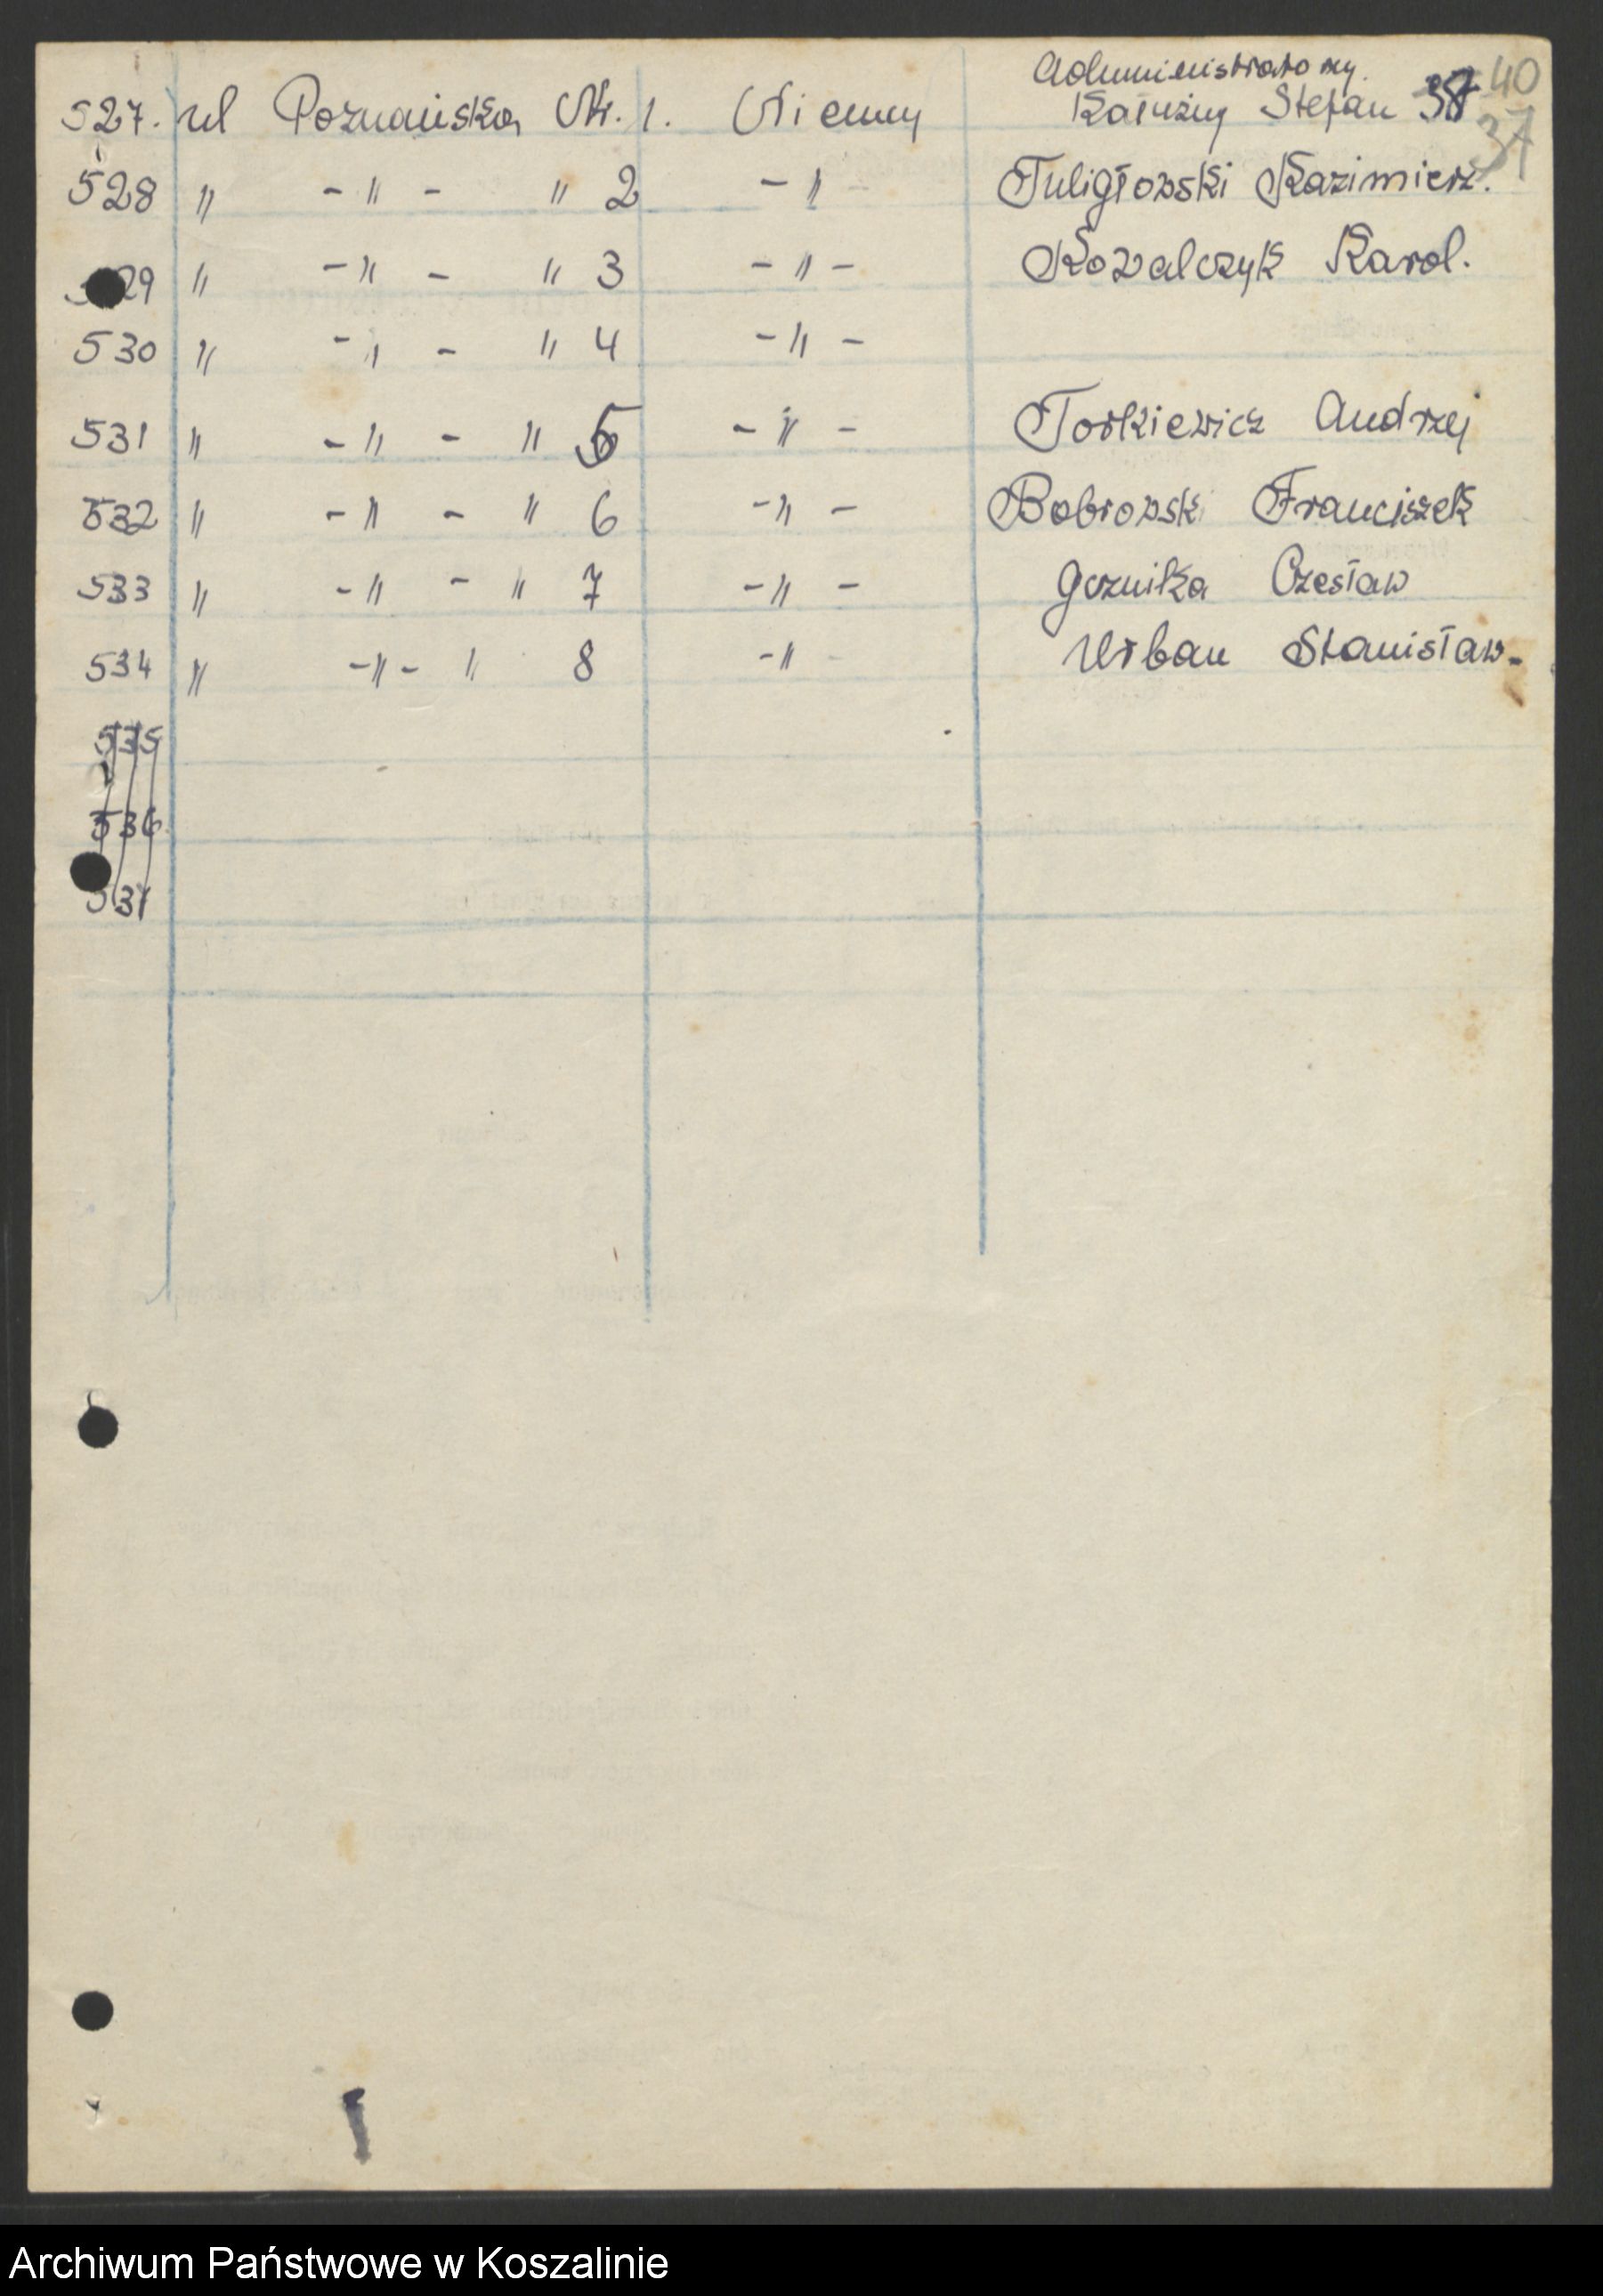 Administratorzy.
527. ul Poznańska Nr. 1. Niemcy Kałużny Stefan 38 40
37
528 " - " - " 2 - " - Tuligłowski Kazimierz.
529 " - " - " 3 - " - Kowalczyk Karol.
530 " - " - " 4 - " -
531 " - " - " 5 - " - Torkiewicz Andrzej
532 " - " - " 6 - " - Bobrowski Franciszek
533 " - " - " 7 - " - Czesław
534 " - " - " 8 - " - Urban Stanisław-
535
536
537
Archiwum Państwowe w Koszalinie